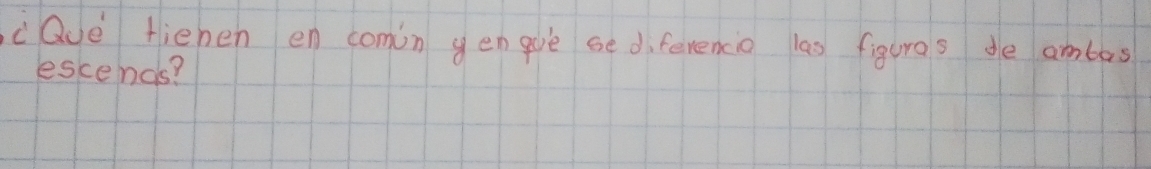 ¿Qué tienen en común y en qué se diferencia las figuras de ambas
escenas?